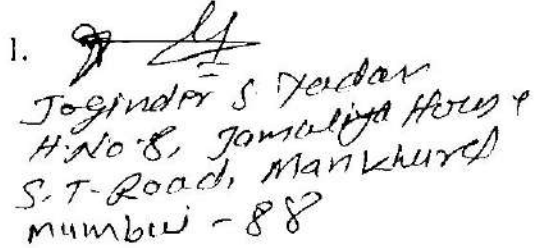 1.
Joginder S Yadav
H.No.8, Jamaliya House
S.T-Road, Mankhurd
Mumbai - 88